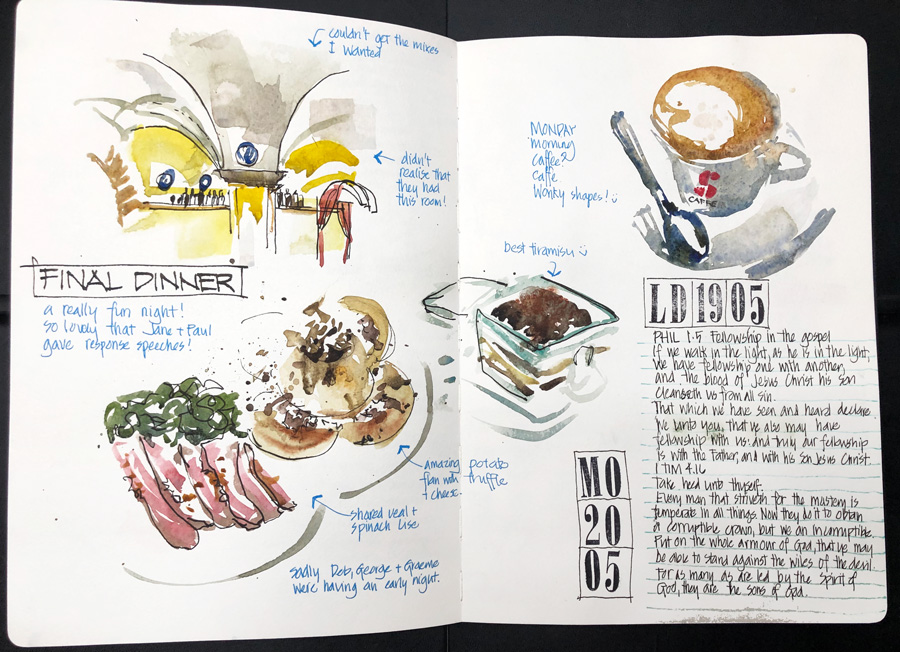 couldn't get the mixes
I wanted
didn't
realise that
they had
this room!
FINAL DINNER
a really fun night!
so lovely that Jane + Paul
gave response speeches!
amazing potato
flan with truffle
+ cheese.
shared veal +
spinach
sadly Deb, George + Graeme
were having an early night.
MONDAY
morning
coffee?
caffe.
Wonky shapes!
S
CAFFE
best tiramisu
LD 1905
PHIL 1:5 Fellowship in the gospel
If we walk in the light, as he is in the light,
we have fellowship one with another,
and the blood of Jesus Christ his son
cleanseth us from all sin.
That which we have seen and heard declare
we unto you, that ye also may have
fellowship with us: and truly our fellowship
is with the Father, and with his son Jesus Christ.
1 TIM 4.16
Take heed unto thyself.
Every man that striveth for the mastery is
temperate in all things. Now they do it to obtain
a corruptible crown, but we an incorruptible.
Put on the whole armour of God, that ye may
be able to stand against the wiles of the devil.
For as many as are led by the Spirit of
God, they are the sons of God.
MO
20
05